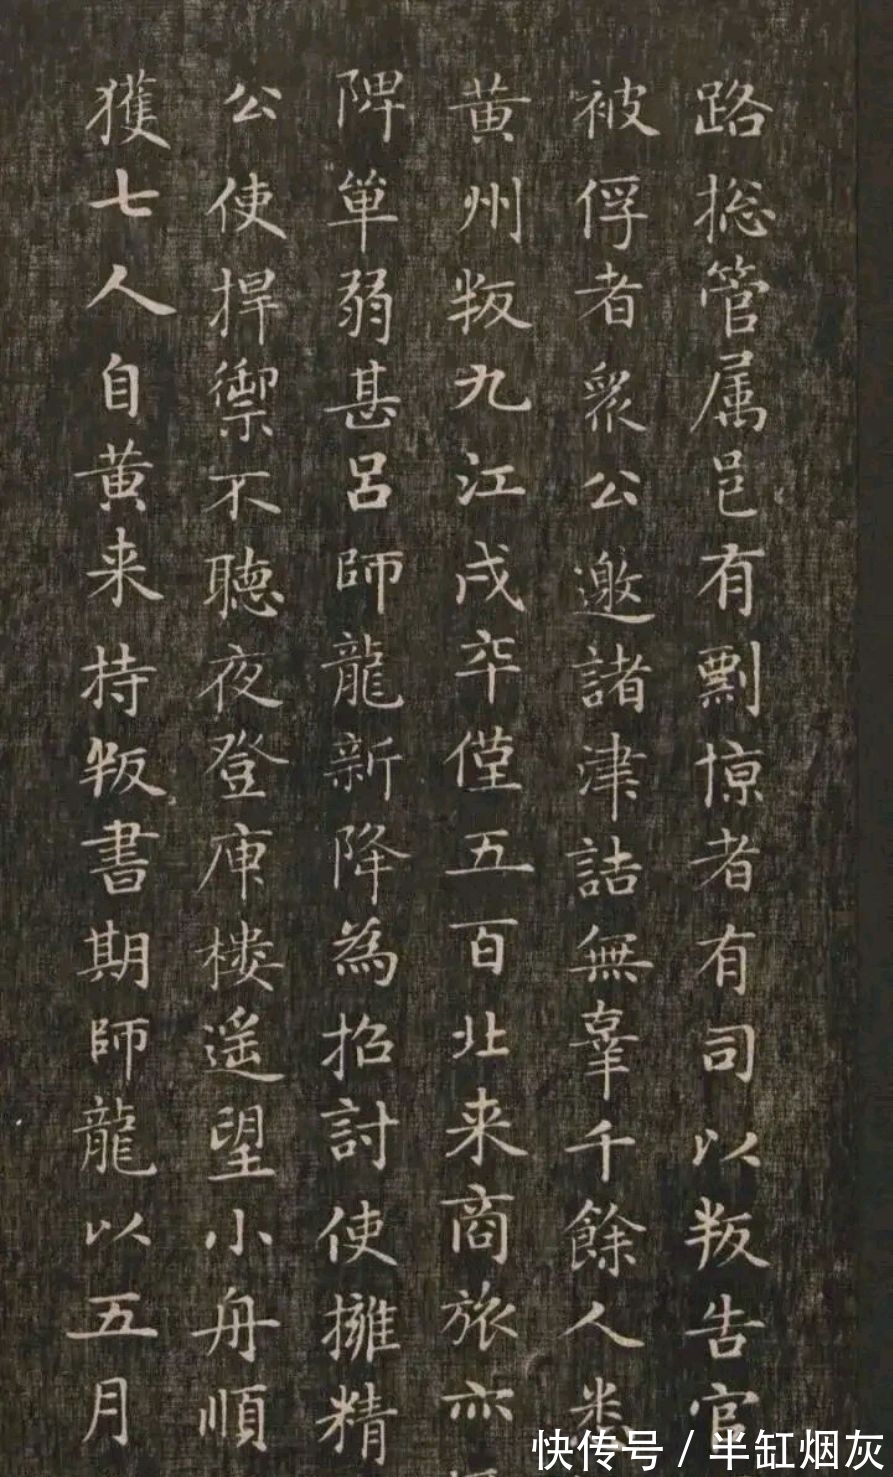 路揔管属邑有剽掠者有司以叛告官
被俘者眾公邀諸津詰無辜千餘人悉
黄州叛九江戍卒僅五百北来商旅亦
陴單弱甚呂師龍新降為招討使擁精
公使捍禦不聽夜登庾楼遥望小舟順
獲七人自黄来持叛書期師龍以五月
快传号 / 半缸烟灰